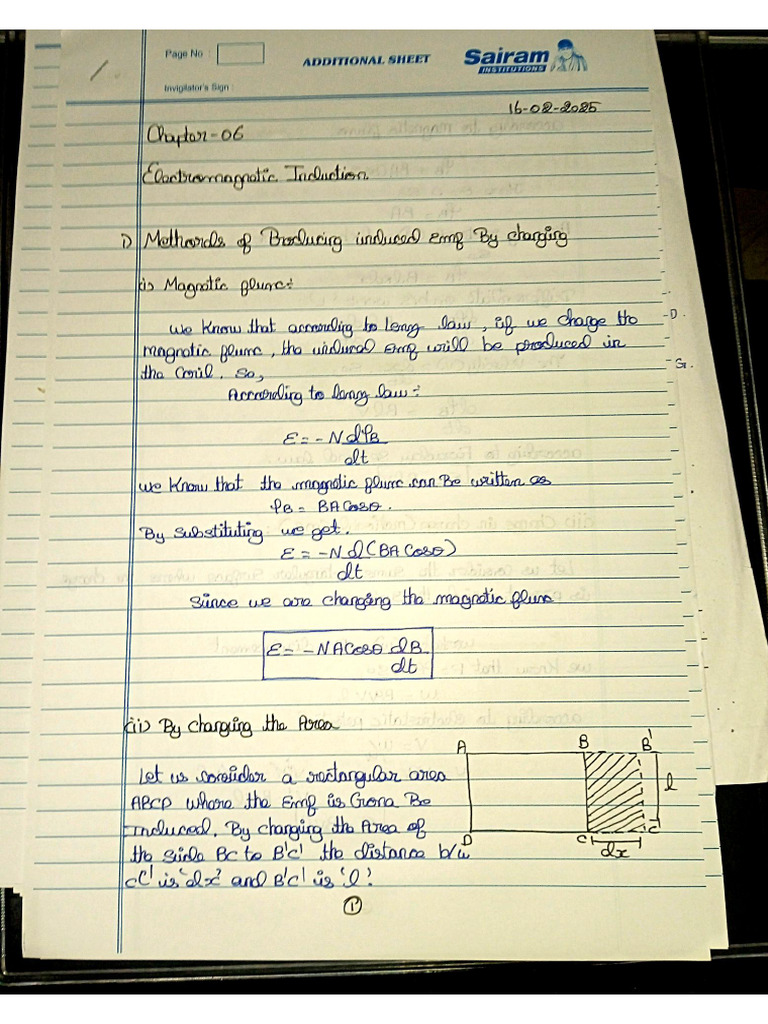 Page No :
ADDITIONAL SHEET
Sairam
INSTITUTIONS
Invigilator's Sign :
16-02-2025
Chapter-06
Electromagnetic Induction
1) Methords of Producing induced Emf By changing
(i) Magnetic flux:
We know that according to Lenz law, if we change the
magnetic flux, the induced Emf will be produced in
the Coil. So,
According to lenz law:
ε = -N dφB
dt
we know that the magnetic flux can Be written as
φB = BA Cosθ.
By Substituting we get.
ε = -N d(BA Cosθ)
dt
Since we are changing the magnetic flux
ε = -NA Cosθ dB
dt
(ii) By changing the Area
Let us consider a rectangular area
ABCD where the Emf is Gona Be
Induced. By changing the Area of
the side BC to B'C' the distance b/w
CC' is 'dx' and B'C' is 'l'
A B B'
l
D C C'
dx
1
D.
G.